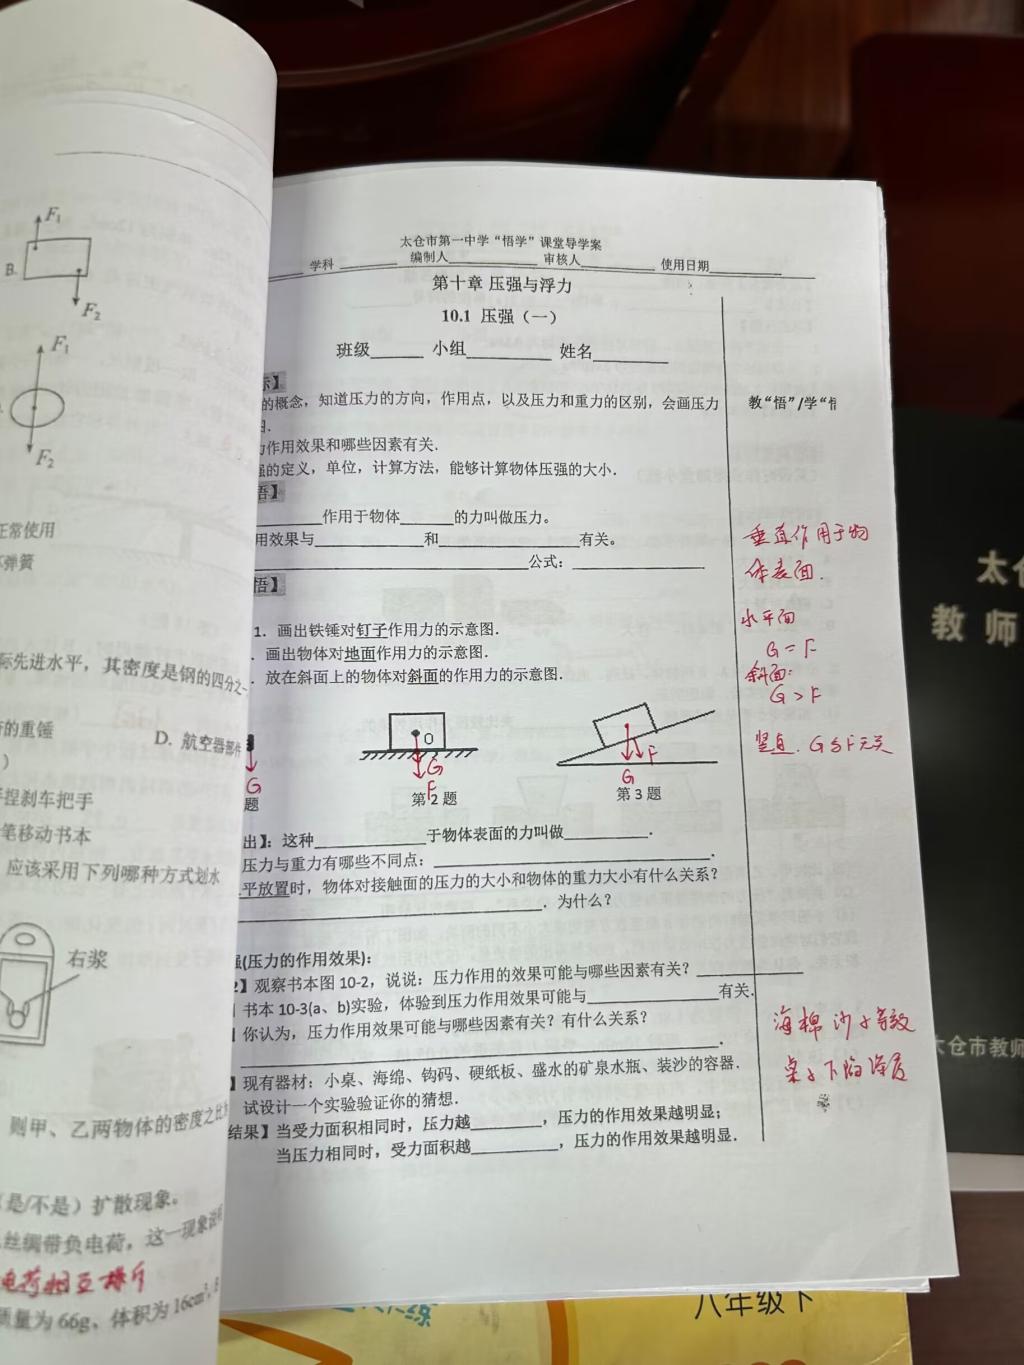 F₁
B.
F₂
F₁
F₂
正常使用
弹簧
际先进水平，其密度是钢的四分之一
的重锤
D. 航空器部件
)
捏刹车把手
笔移动书本
应该采用下列哪种方式划水
右浆
则甲、乙两物体的密度之比为
（是/不是）扩散现象。
丝绸带负电荷，这一现象说明
电荷相互排斥
质量为 66g、体积为 16cm³,
太仓市第一中学“悟学”课堂导学案
学科 编制人 审核人 使用日期
第十章 压强与浮力
10.1 压强（一）
班级 小组 姓名
标】
的概念，知道压力的方向，作用点，以及压力和重力的区别，会画压力
力作用效果和哪些因素有关．
强的定义，单位，计算方法，能够计算物体压强的大小．
悟】
作用于物体 的力叫做压力。
用效果与 和 有关。
公式：
悟】
1. 画出铁锤对钉子作用力的示意图．
. 画出物体对地面作用力的示意图．
. 放在斜面上的物体对斜面的作用力的示意图．
O
G
G
F
F
G
题
第 2 题
第 3 题
出】：这种 于物体表面的力叫做 .
压力与重力有哪些不同点： .
平放置时，物体对接触面的压力的大小和物体的重力大小有什么关系？
. 为什么？
强(压力的作用效果)：
2】观察书本图 10-2，说说：压力作用的效果可能与哪些因素有关？
书本 10-3(a、b)实验，体验到压力作用效果可能与 有关.
你认为，压力作用效果可能与哪些因素有关？有什么关系？
.
】现有器材：小桌、海绵、钩码、硬纸板、盛水的矿泉水瓶、装沙的容器．
试设计一个实验验证你的猜想．
结果】当受力面积相同时，压力越 ，压力的作用效果越明显；
当压力相同时，受力面积越 ，压力的作用效果越明显．
教“悟”/学“悟
垂直作用于物
体表面.
水平面
G = F
斜面:
G > F
竖直. G与F无关
海棉 沙子等效
桌子下陷深度
太仓
教 师
太仓市教师
八年级下